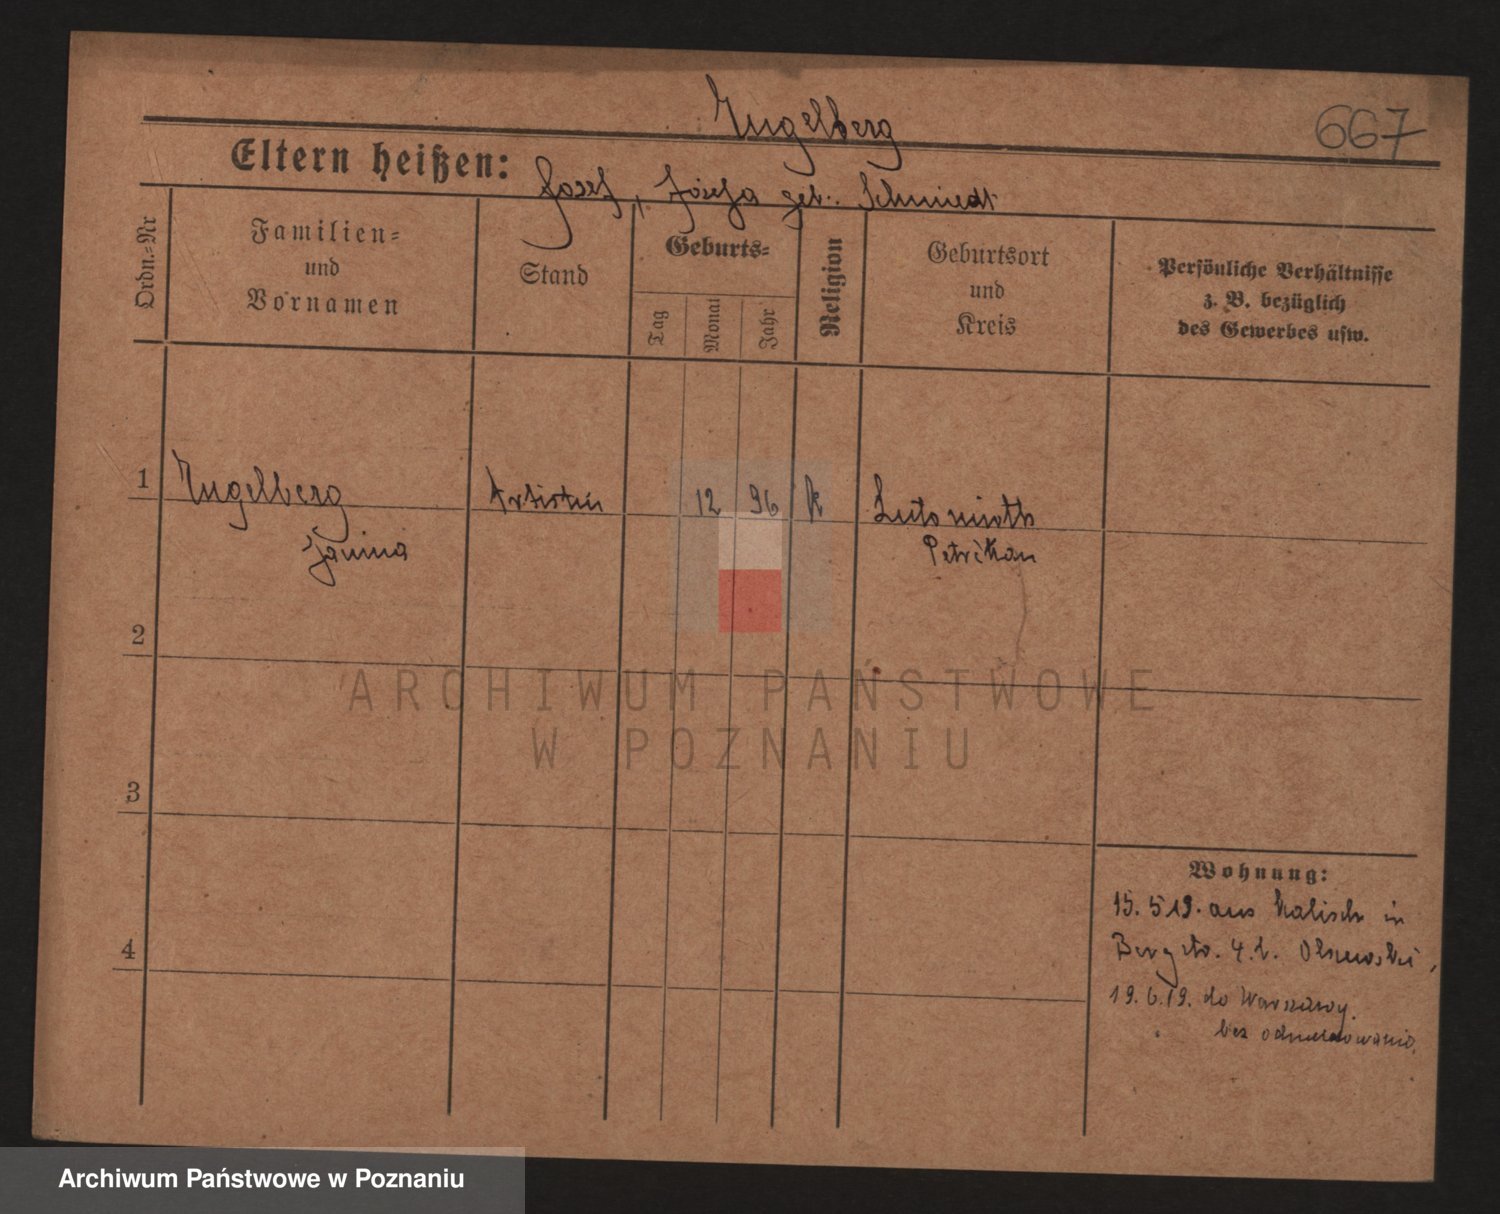 Engelberg
667
Eltern heißen: Josef, Józefa geb. Schmiedt
Ordn.-Nr
Familien-
und
Vornamen
Stand
Geburts-
Tag
Monat
Jahr
Religion
Geburtsort
und
Kreis
Persönliche Verhältnisse
z. B. bezüglich
des Gewerbes usw.
1 Engelberg Artistin 12 96 k
Janina Petrikau
2
3
4
Wohnung:
15. 5 19. aus Kalisch in
Bergstr. 4. b.
19. 6. 19. do Warszawy.
bez odmeldowania.
ARCHIWUM PAŃSTWOWE
W POZNANIU
Archiwum Państwowe w Poznaniu